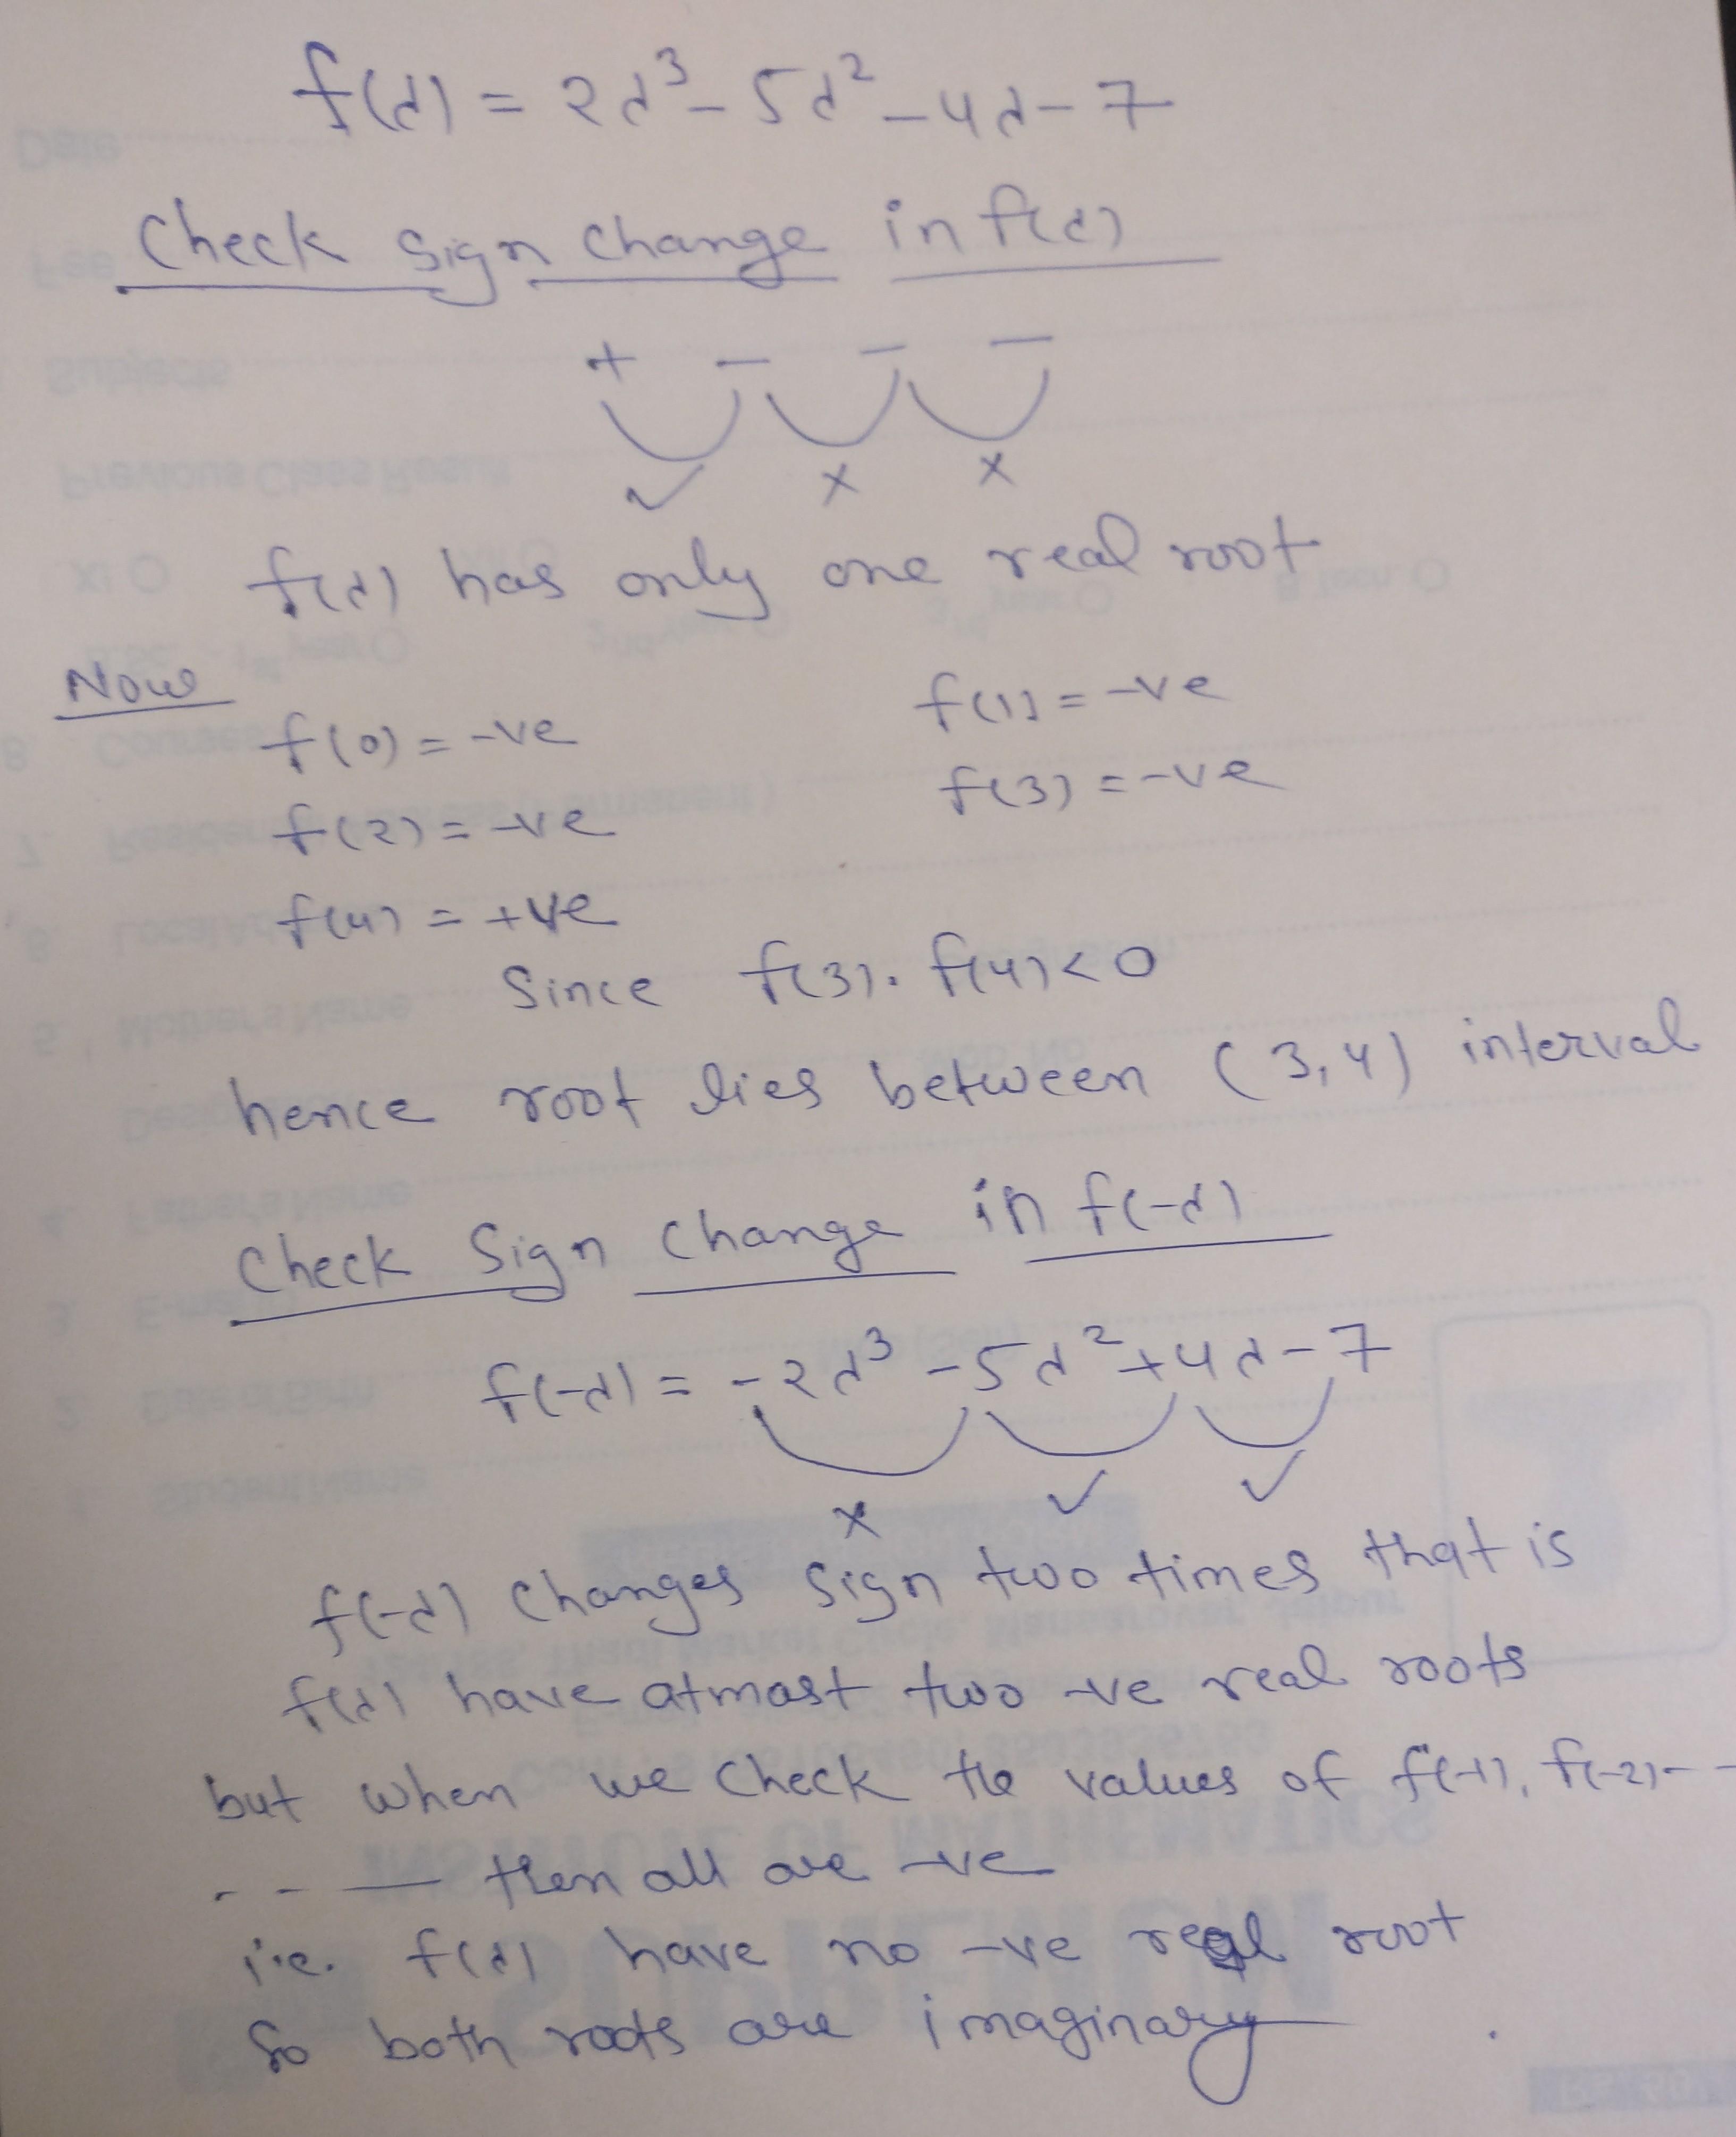 f(α) = 2α³ - 5α² - 4α - 7
Check Sign Change in f(α)
+ - - -
✓ × ×
f(α) has only one real root
Now
f(0) = -ve f(1) = -ve
f(2) = -ve f(3) = -ve
f(4) = +ve
Since f(3). f(4) < 0
hence root lies between (3,4) interval
Check Sign Change in f(-α)
f(-α) = -2α³ - 5α² + 4α - 7
× ✓ ✓
f(-α) Changes sign two times that is
f(α) have atmast two -ve real roots
but when we Check the values of f(-1), f(-2) - -
- - — then all are -ve
i.e. f(α) have no -ve real root
So both roots are imaginary